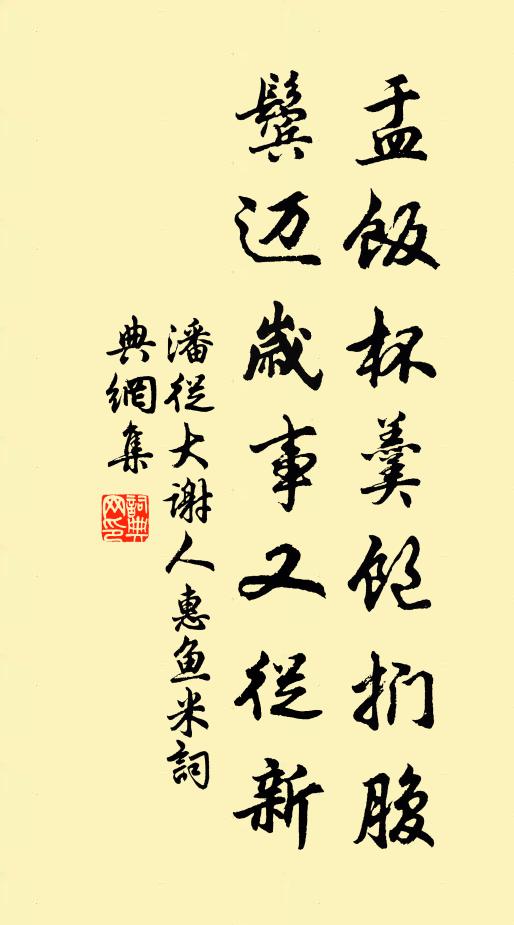 盂飯杯羹飽捫腹
鬢邁歲事又從新
潘從大謝人惠魚米詞
典網集
詞典
网印